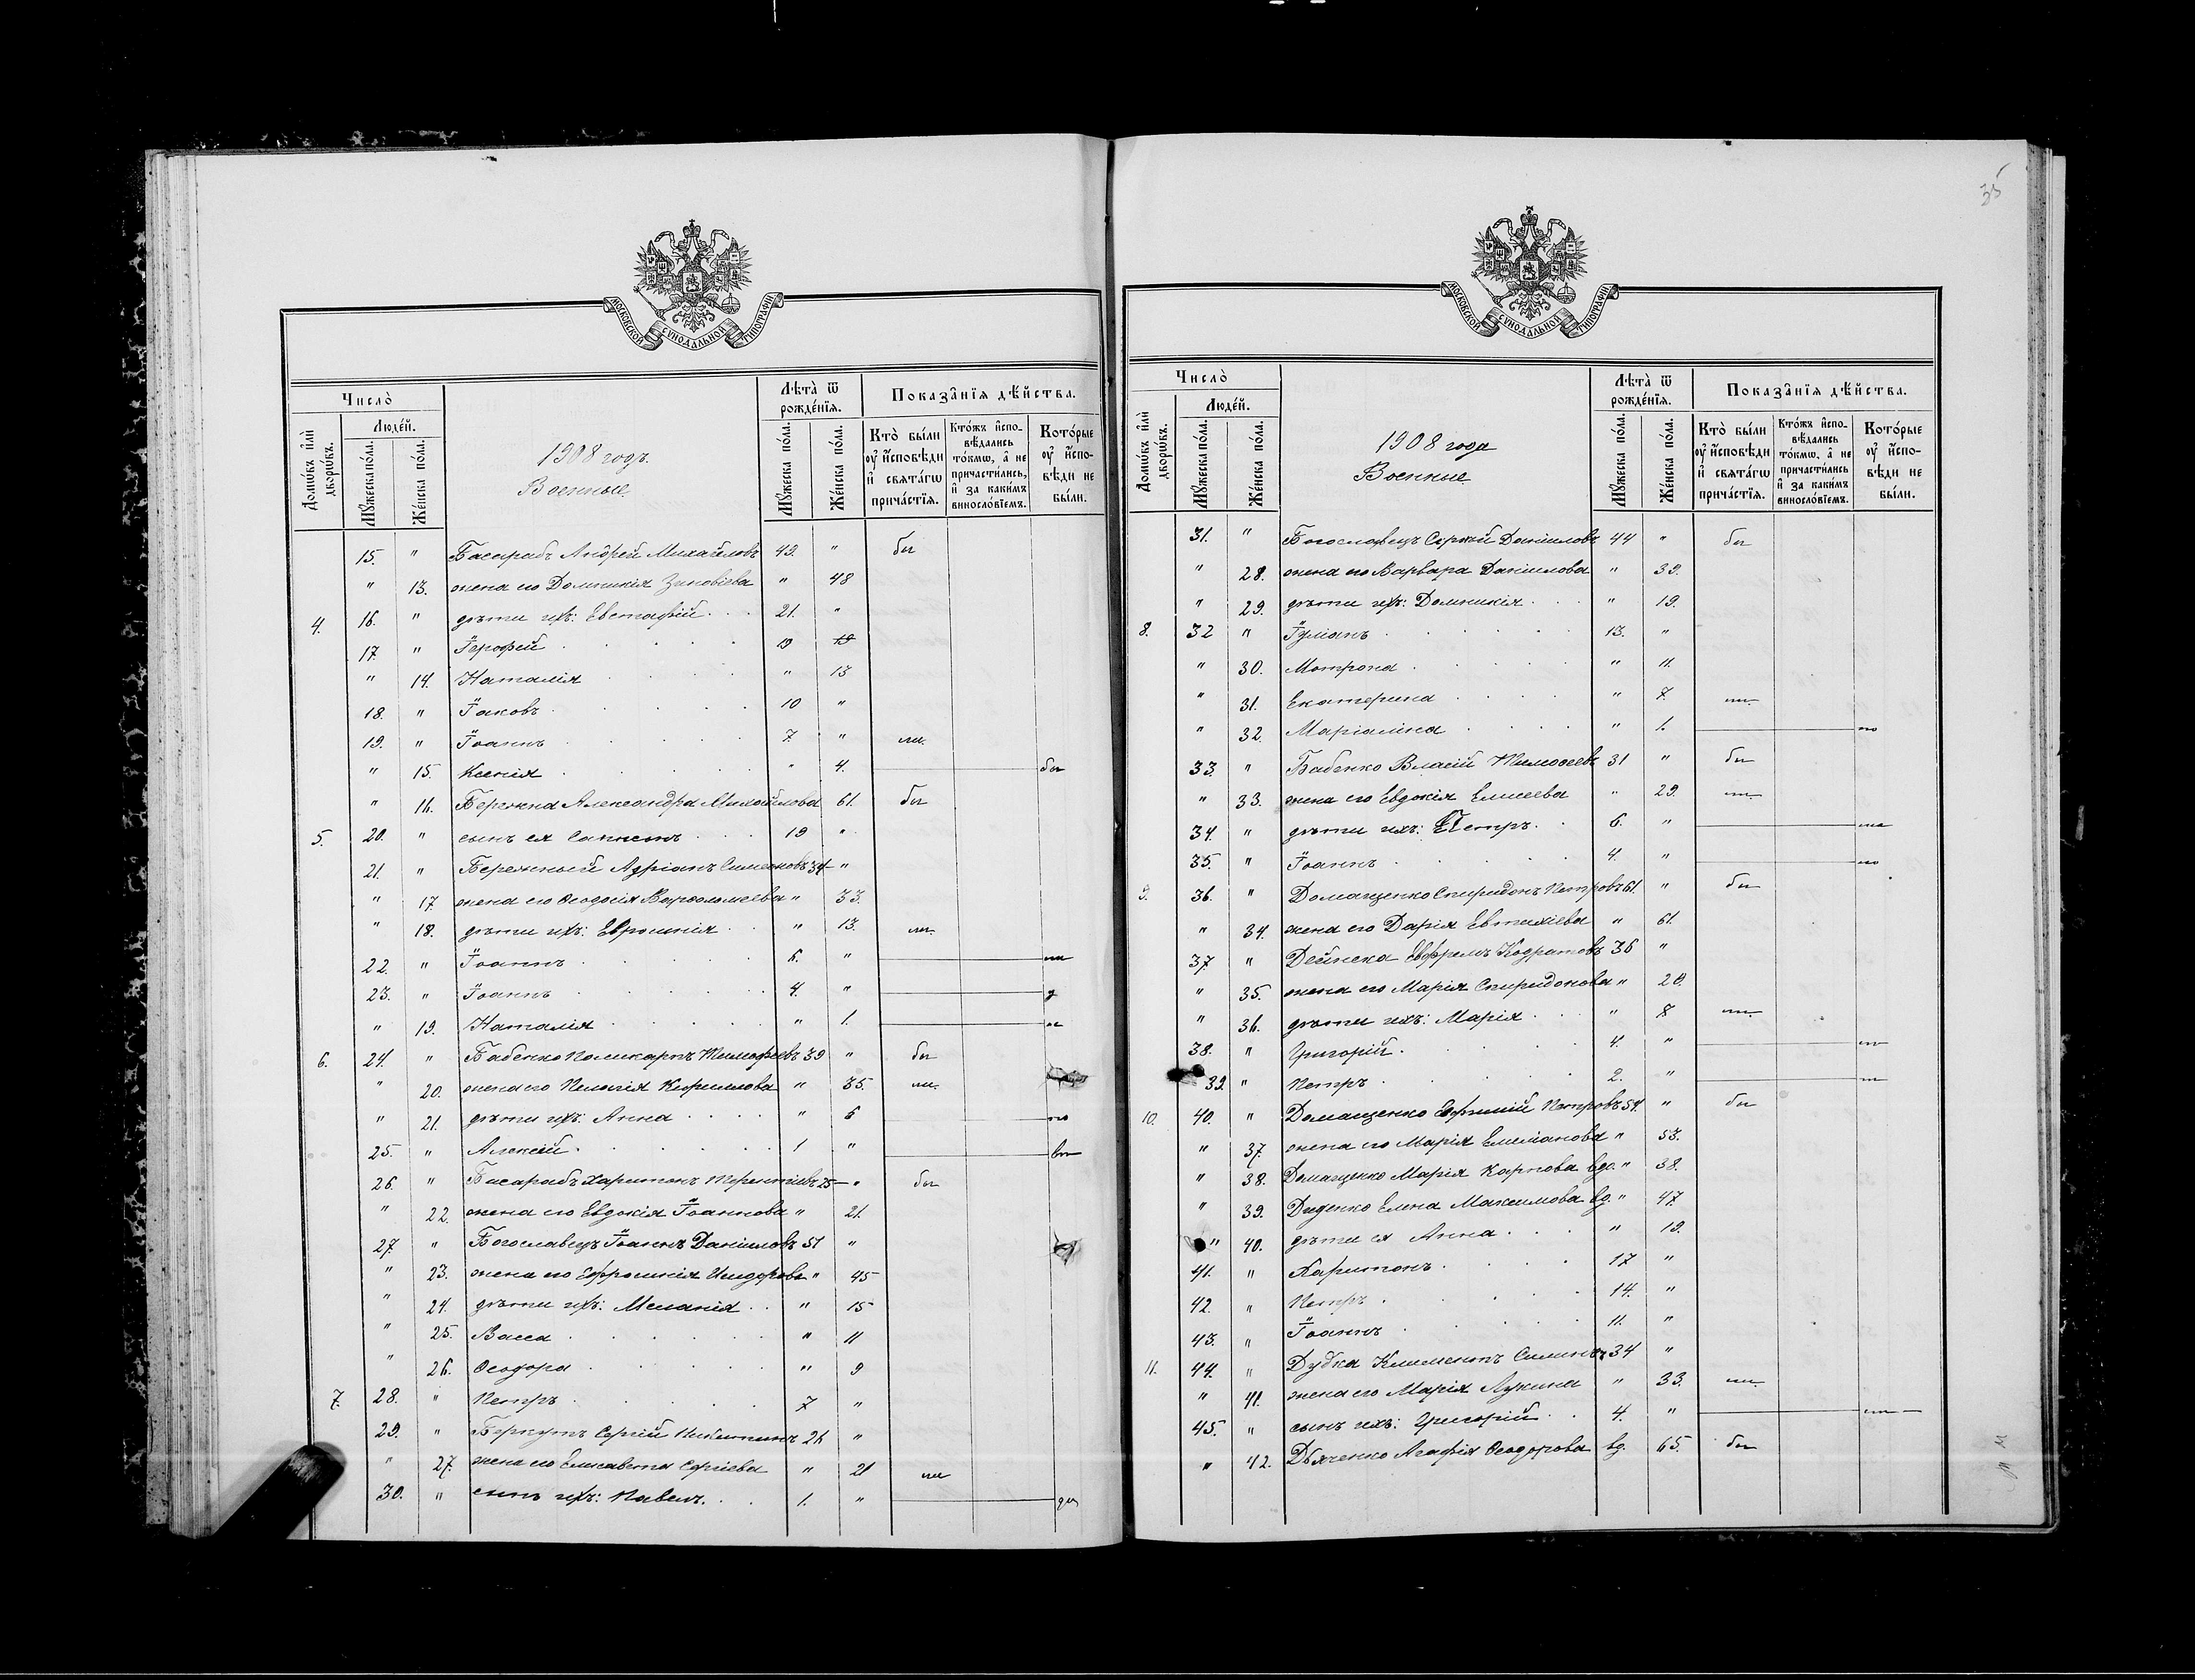 35
МОСКОВСКОЙ СѴНОДАЛЬНОЙ ТИПОГРАФІИ
Число̀
Домѡ́въ и҆лѝ дворѡ́въ.
Люде́й.
Мꙋ́жеска по́ла.
Же́нска по́ла.
1908 годъ.
Военные
Лѣта̀ ѿ рожде́нїѧ.
Мꙋ́жеска по́ла.
Же́нска по́ла.
Показа̑нїѧ дѣ́йства.
Кто̀ бы́ли ᲂу҆ и҆́сповѣди и҆ свѧта́гѡ прича́стїѧ.
Кто́жъ и҆спо-вѣ́дались то́кмѡ, а҆ не причасти́лись, и҆ за каки́мъ винослові́емъ.
Кото́рые ᲂу҆ и҆́спо-вѣди не бы́ли.
15. " Басарабъ Андрей Михайловъ 49. " бы
" 13. жена его Домникія Зиновіева " 48
4. 16. " дѣти ихъ: Евстафій 21. "
17. " Іерофей 19 19
" 14. Наталія " 13
18. " Іаковъ 10 "
19. " Іоаннъ 7. " ли.
" 15. Ксенія " 4. бы
" 16. Бережна Александра Михайлова 61. бы
5. 20. " сынъ ея 19 "
21. " Бережный Адріанъ Симеоновъ 34 "
" 17. жена его Ѳеодосія Варѳоломеева " 33.
" 18. дѣти ихъ: Евросинія " 13. ли.
22. " Іоаннъ 6. "
23. " Іоаннъ 4. "
" 19. Наталія " 1.
6. 24. " Бабенко Поликарпъ Тимофеевъ 39 " бы
" 20. жена его Пелагія Кириллова " 35. ли.
" 21. дѣти ихъ: Анна " 6 по
25. " Алексій 1 "
26. " Басарабъ Харитонъ Терентіевъ 25 " бы
" 22. жена его Евдокія Іоаннова " 21.
27. " Богославецъ Іоаннъ Даніиловъ 51 "
" 23. жена его Ефросинія Исидорова " 45
" 24. дѣти ихъ: Меланія " 15
" 25. Васса " 11
" 26. Ѳеодора " 9
7. 28. " Петръ 7 "
29. " Беркутъ Сергій 26 "
" 27. жена его Елисавета Сергіева " 21 ли
30. " сынъ ихъ: Павелъ. 1. "
МОСКОВСКОЙ СѴНОДАЛЬНОЙ ТИПОГРАФІИ
Число̀
Домѡ́въ и҆лѝ дворѡ́въ.
Люде́й.
Мꙋ́жеска по́ла.
Же́нска по́ла.
1908 года
Военные
Лѣта̀ ѿ рожде́нїѧ.
Мꙋ́жеска по́ла.
Же́нска по́ла.
Показа̑нїѧ дѣ́йства.
Кто̀ бы́ли ᲂу҆ и҆́сповѣди и҆ свѧта́гѡ прича́стїѧ.
Кто́жъ и҆спо-вѣ́дались то́кмѡ, а҆ не причасти́лись и҆ за каки́мъ винослові́емъ.
Кото́рые ᲂу҆ и҆́спо-вѣди не бы́ли.
31. " Богославецъ Сергій Даніиловъ 44 " бы
" 28. жена его Варвара Даніилова " 39.
" 29. дѣти ихъ: Домникія " 19.
8. 32 " Іуліанъ 13. "
" 30. Мотрона " 11.
" 31. Екатерина " 7. ли.
" 32. Маріамна " 1. по
33. " Бабенко Власій Тимоѳеевъ 31 " бы
" 33. жена его Евдокія Елисеева " 29. ли.
34. " дѣти ихъ: Петръ 6. "
35. " Іоаннъ 4. " по
9. 36. " Домащенко Спиридонъ Петровъ 61. " бы
" 34. жена его Дарія Евтихіева " 61.
37 " Дейнека Ефремъ Кодратовъ 36 "
" 35. жена его Марія Спиридонова " 28.
" 36. дѣти ихъ: Марія " 8 ли.
38. " Григорій 4. "
39. " Петръ 2. "
10. 40. " Домащенко Ефимій Петровъ 54. " бы
" 37. жена его Марія Емеліанова " 53.
" 38. Домащенко Марія Карпова вд. " 38.
" 39. Диденко Елена Максимова вд. " 47.
" 40. дѣти ея Анна " 19.
41. " Харитонъ 17 "
42. " Петръ 14. "
43. " Іоаннъ 11. "
11. 44. " Дубка Климентъ 34 "
" 41. жена его Марія Лукина " 33. ли.
45. " сынъ ихъ: Григорій 4. "
" 42. Дьяченко Агафія Ѳеодорова вд. 65. бы